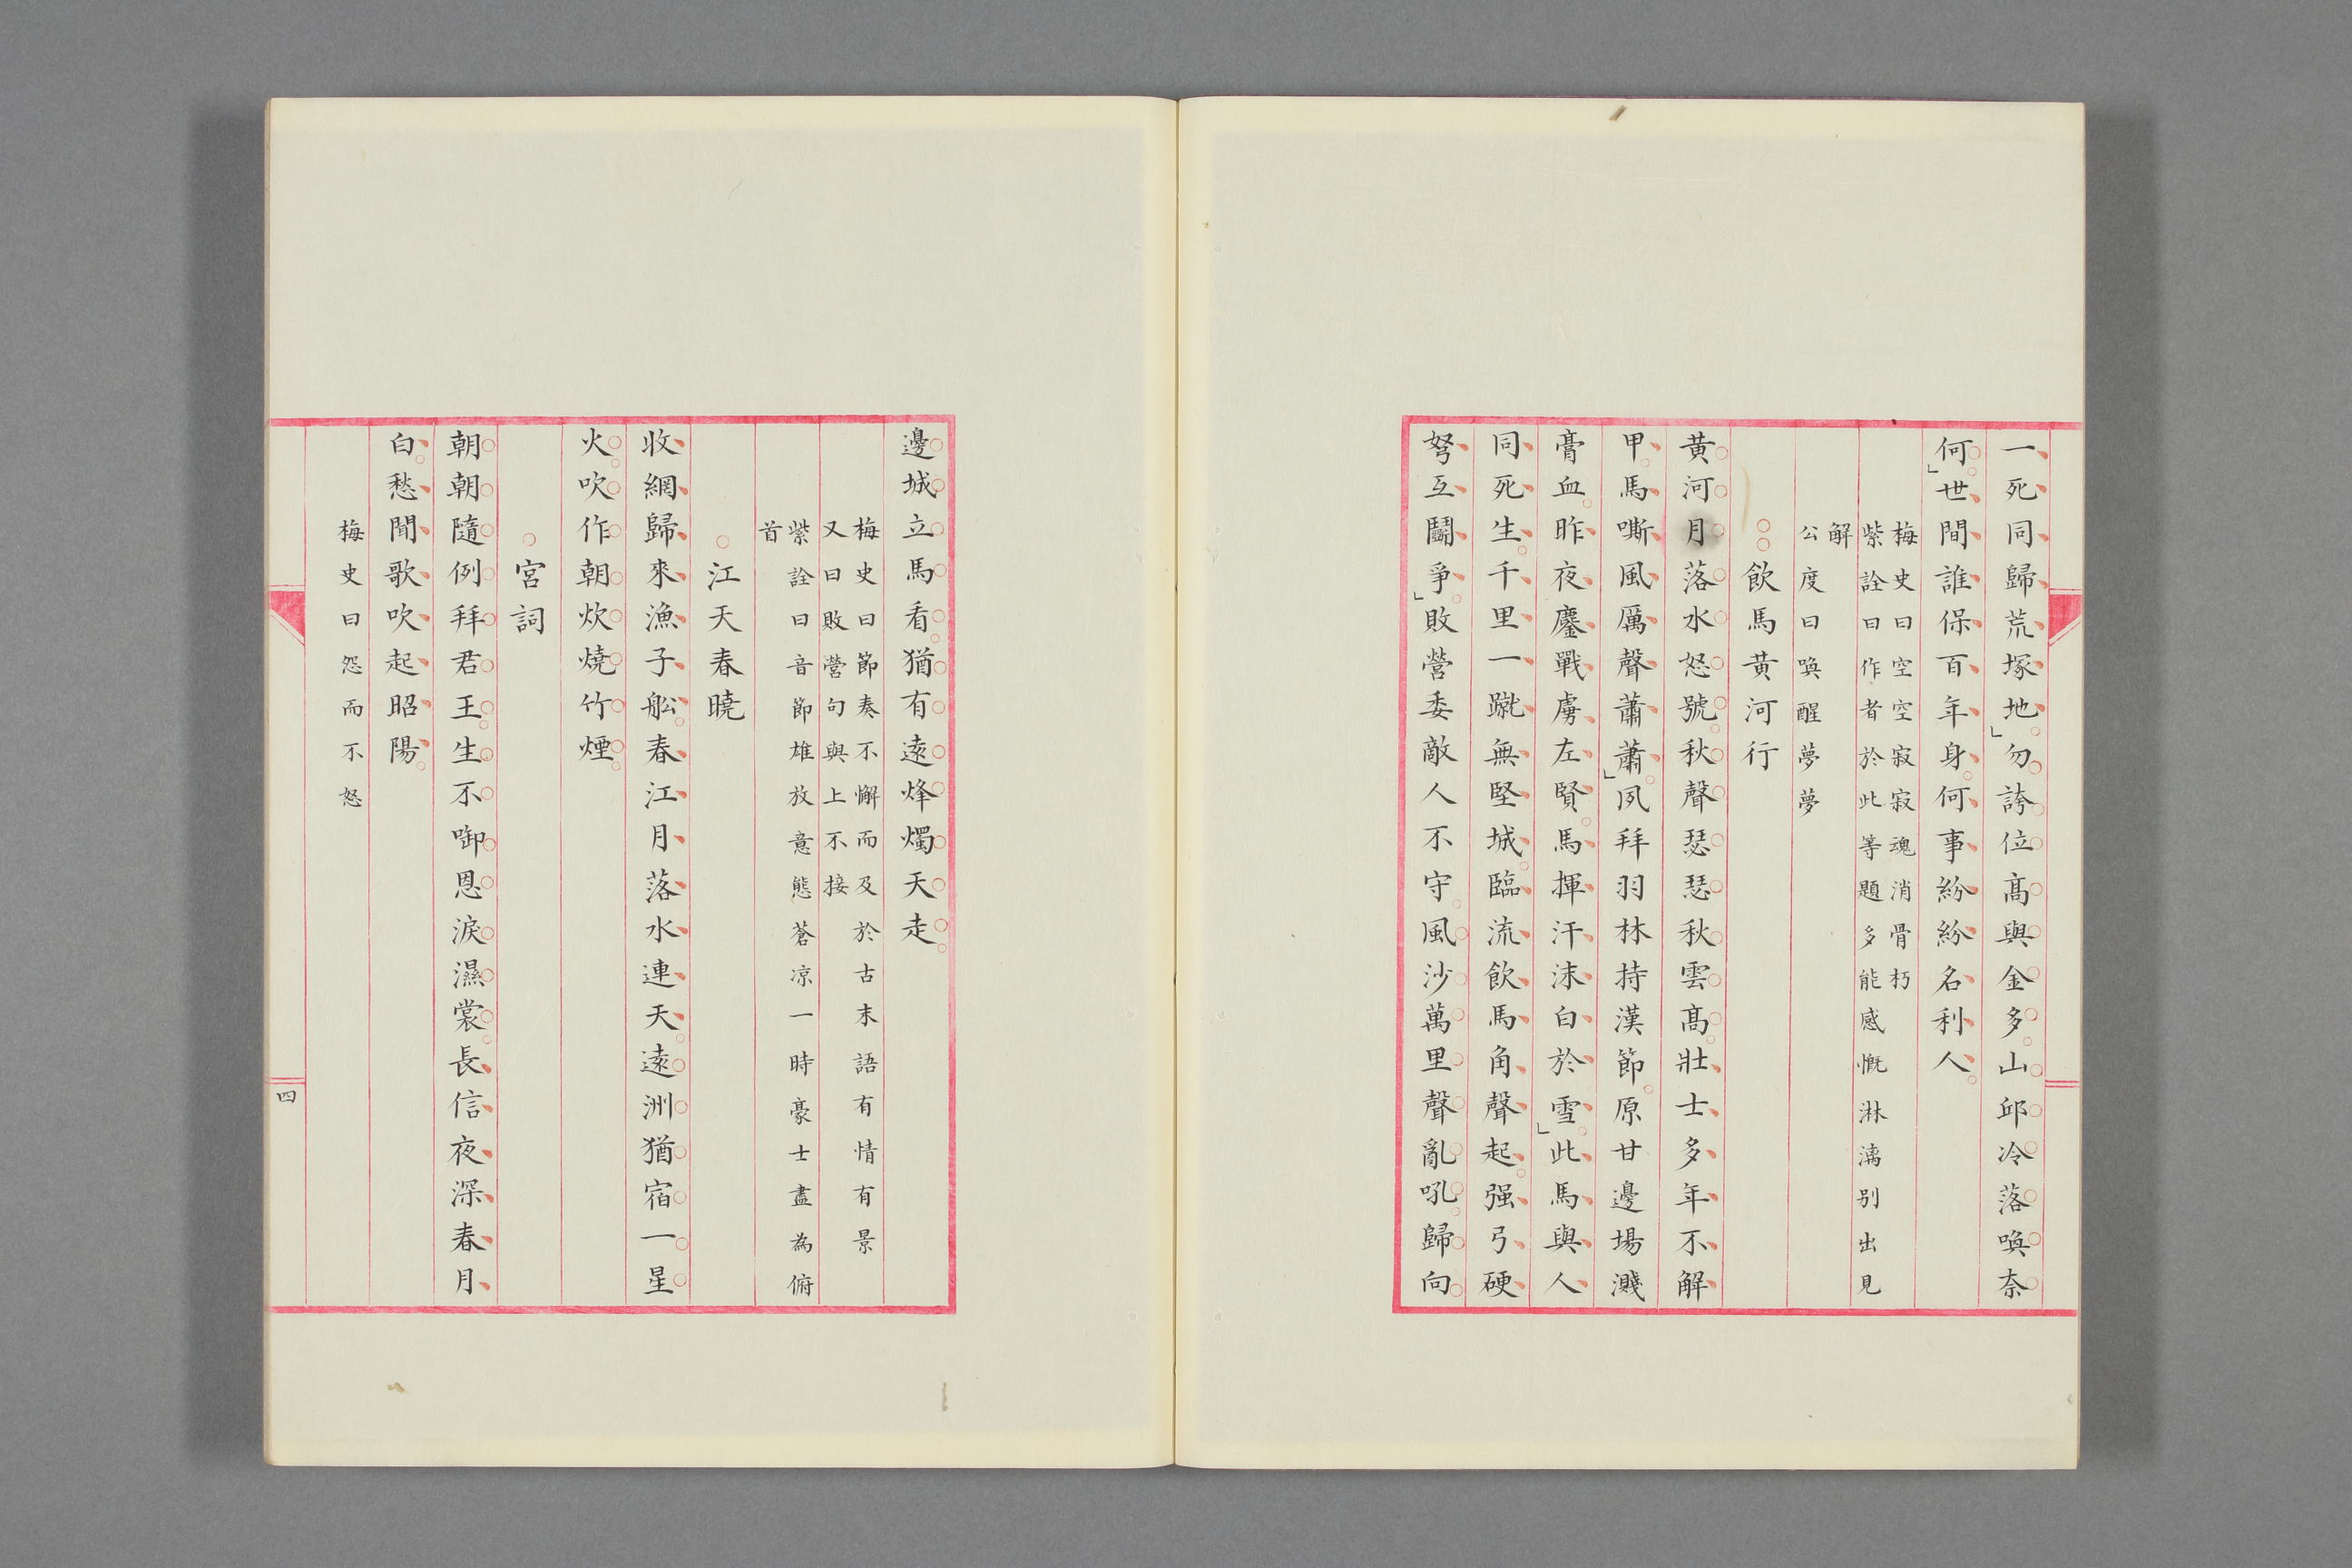 一死同歸荒塚地勿誇位高與金多山邱冷落喚奈
何世間誰保百年身何事紛紛名利人
梅史曰空空寂寂魂消骨朽
紫詮曰作者於此等題多能感慨淋漓別出見
解
公度曰喚醒夢夢
飲馬黃河行
黃河月落水怒號秋聲瑟瑟秋雲高壯士多年不解
甲馬嘶風厲聲蕭蕭夙拜羽林持漢節原甘邊場濺
膏血昨夜鏖戰虜左賢馬揮汗沫白於雪此馬與人
同死生千里一蹴無堅城臨流飲馬角聲起强弓硬
弩互鬭爭敗營委敵人不守風沙萬里聲亂吼歸向
邊城立馬看猶有遠烽燭天走
梅史曰節奏不懈而及於古末語有情有景
又曰敗營句與上不接
紫詮曰音節雄放意態蒼凉一時豪士盡為俯
首
江天春曉
收網歸來漁子舩春江月落水連天遠洲猶宿一星
火吹作朝炊燒竹煙
宮詞
朝朝隨例拜君王生不啣恩淚濕裳長信夜深春月
白愁聞歌吹起昭陽
梅史曰怨而不怒
四